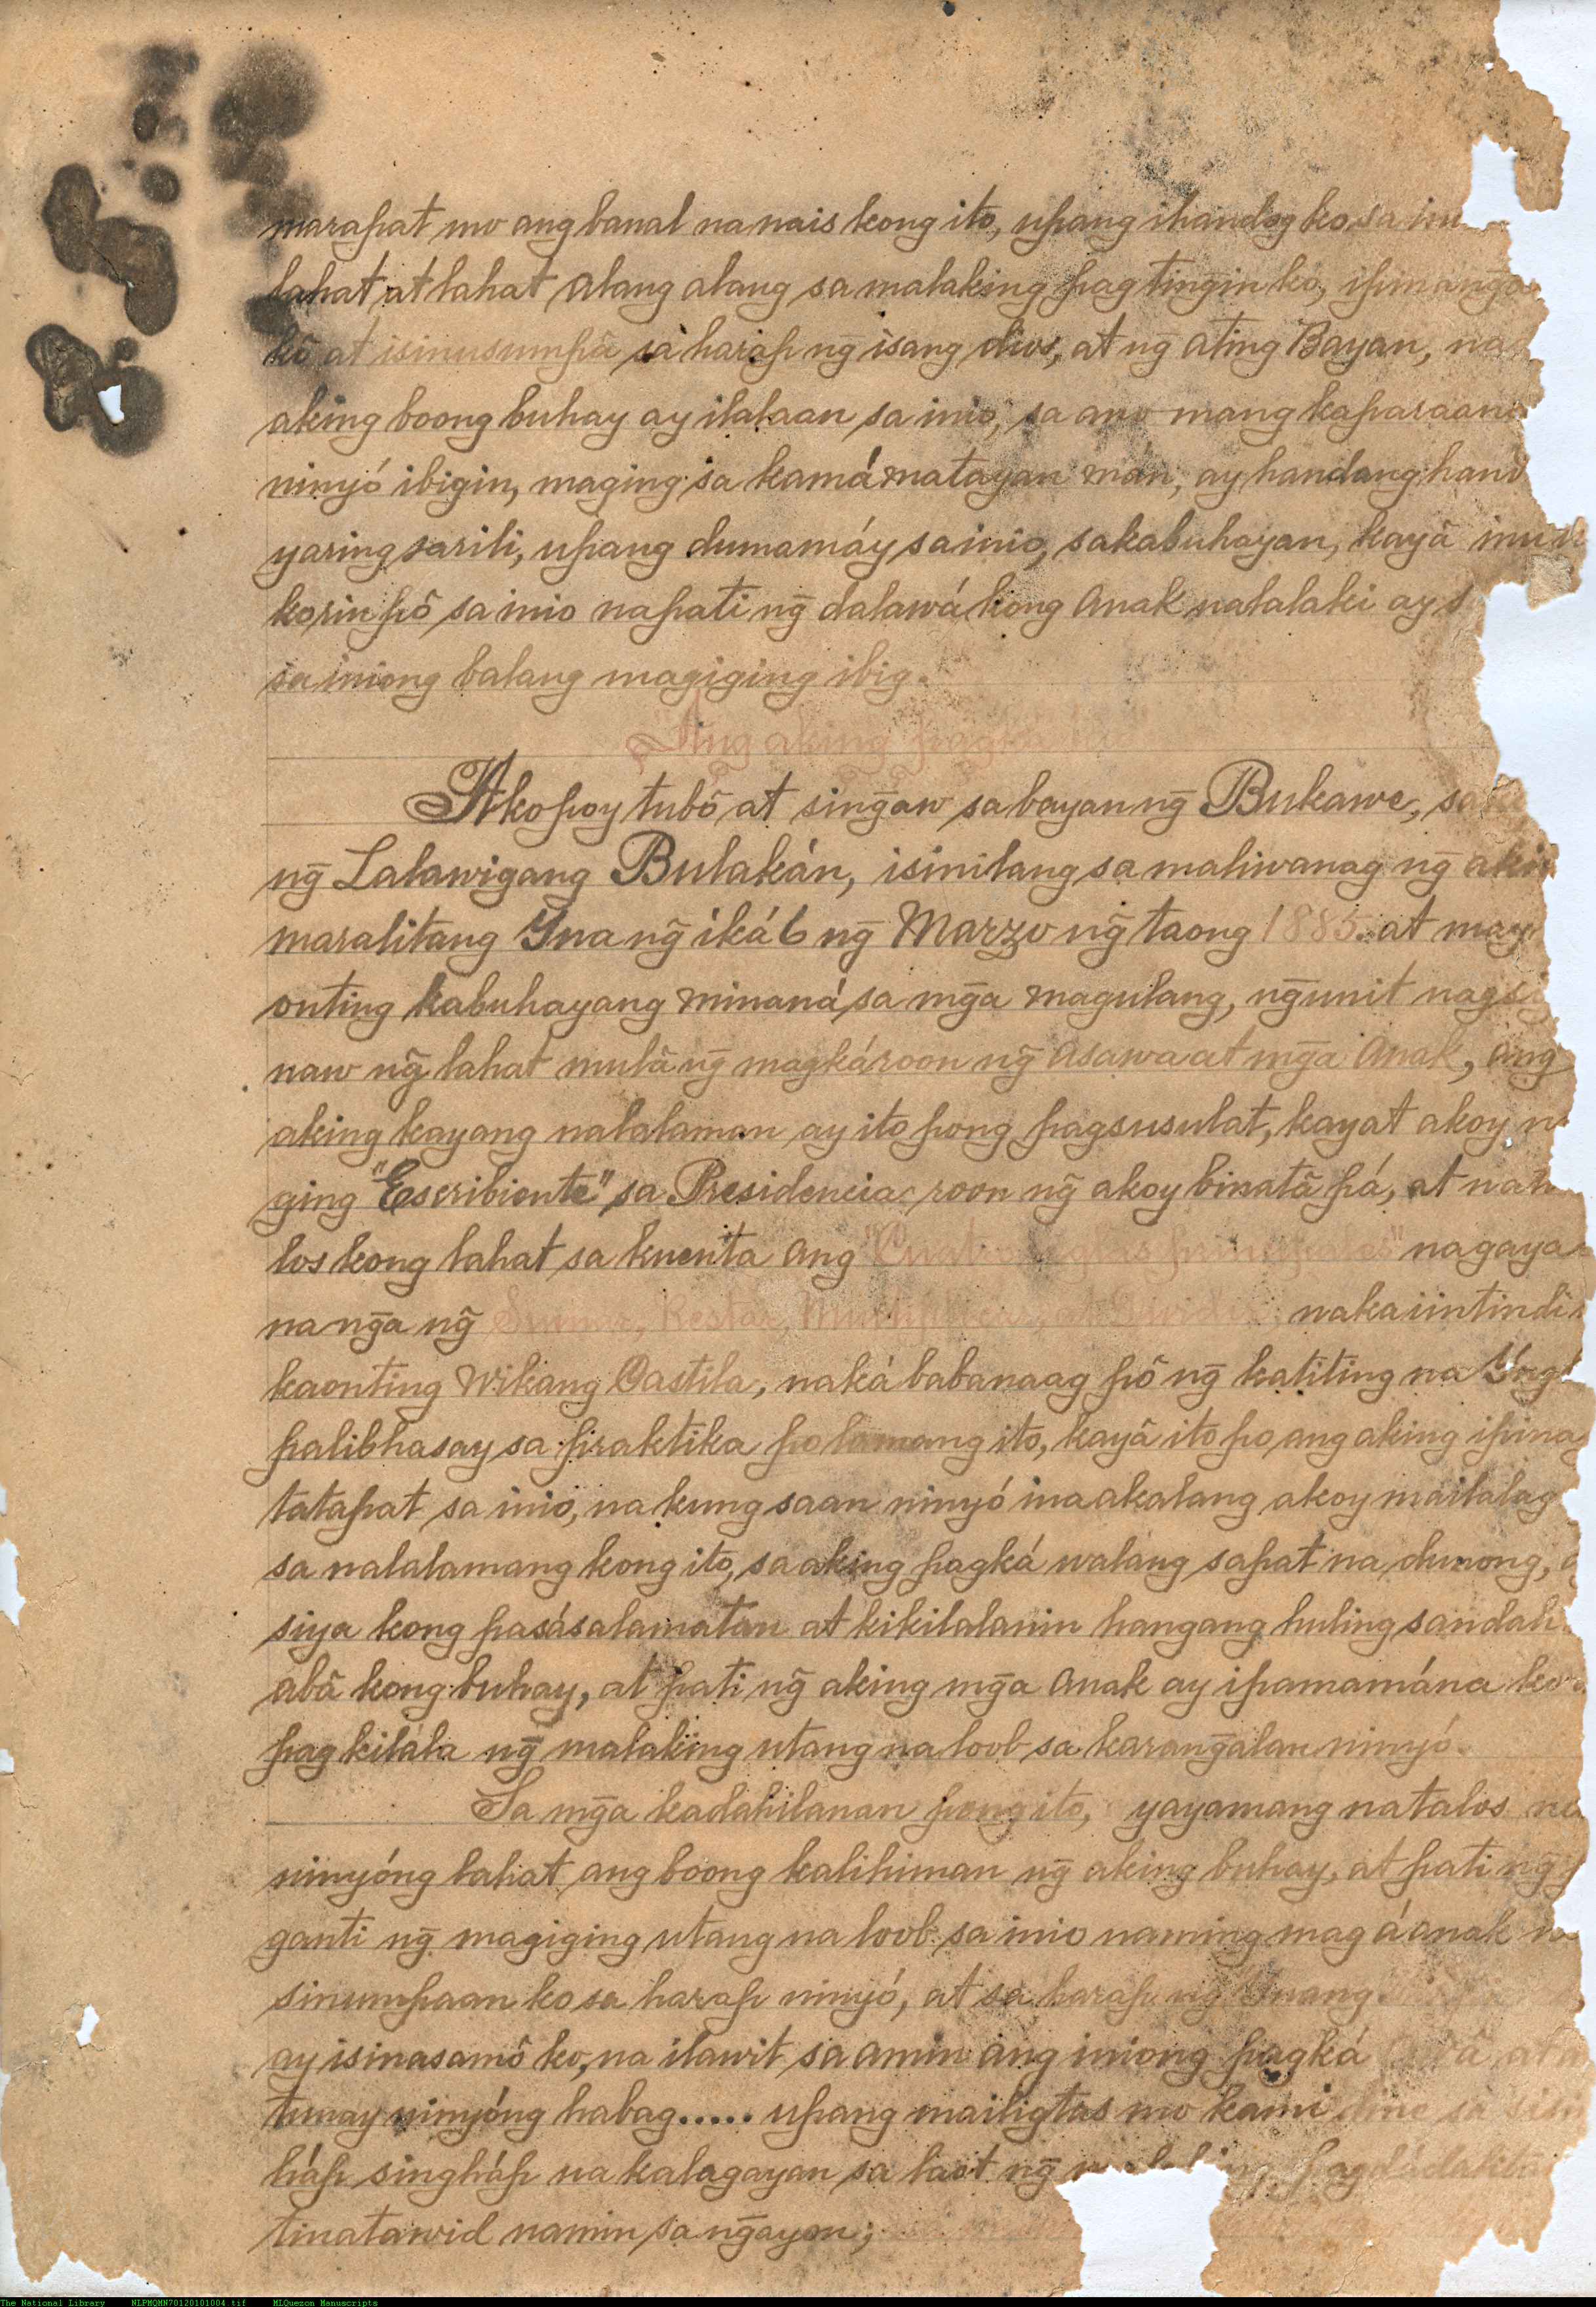 marapat mo ang banal na nais kong ito, upang ihandog ko sa
lahat at lahat alang alang sa malaking pag tiñgin ko,
ko at isinusumpâ sa harap ng̃ isang dios, at ng̃ ating Bayan,
aking boong buhay ay ilalaan sa inio, sa ano mang
ninyó ibigin, maging sa kamámatayan man, ay handang
yaring sarili, upang dumamáy sa inio, sa kabuhayan, kayâ
ko rin pô sa inio na pati ng̃ dalawá kong Anak na lalaki ay
sa iniong balang magiging ibig.
Ang aking
Ako poy tubô at sing̃aw sa bayan ng̃ Bukawe,
ng̃ Lalawigang Bulakán, isinilang sa maliwanag ng̃
maralitang Yna ng̃ iká 6 ng̃ Marzo ng̃ taong 1885. at
onting kabuhayang minaná sa mg̃a magulang, ng̃unit
naw ng̃ lahat mulâ ng̃ magkároon ng̃ asawa at mg̃a Anak, ang
aking kayang nalalaman ay ito pong pagsusulat, kayat akoy
ging "Escribiente" sa Presidencia roon ng̃ akoy binatâ pá, at
los kong lahat sa kuenta ang nagaya
na ng̃a ng̃ Restar, nakaiintindi
kaonting Wikang Castila, naká babanaag pô ng̃ katiting na
palibhasay sa piraktika po lamang ito, kayâ ito po ang aking
tatapat sa inio, na kung saan ninyó inaakalang akoy
sa nalalamang kong ito, sa aking pagká walang sapat na dunong,
siya kong pasásalamatan at kikilalanin hangang huling
abâ kong buhay, at pati ng̃ aking mg̃a Anak ay ipamamána ko
pag kilála ng̃ malaking utang na loob sa karang̃alan ninyó.
Sa mg̃a kadahilanan pong ito, yayamang natalos
ninyóng lahat ang boong kalihiman ng̃ aking buhay, at pati ng̃
ganti ng̃ magiging utang na loob sa inio naming mag áanak
sinumpaan ko sa harap ninyó, at sa harap ng̃ Ynang
ay isinasamô ko, na ilawit sa amin ang iniong pagká at
tunay ninyóng habag..... upang mailigtas mo kami dine sa
háp singháp na kalagayan sa laot ng̃
tinatawid namin sa ng̃ayon;
The National Library NLPMQMN70120101004.tif MLQuezon Manuscripts